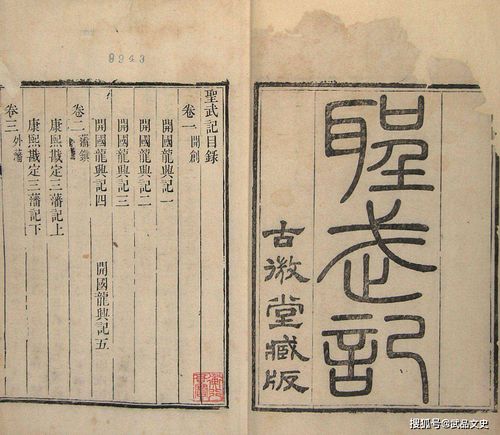 聖武記
古微堂藏版
9943
聖武記目錄
卷一 開創
開國龍興記一
開國龍興記二
開國龍興記三
開國龍興記四 開國龍興記五
卷二 藩鎮
康熙戡定三藩記上
康熙戡定三藩記下
卷三 外藩
搜狐号@武品文史